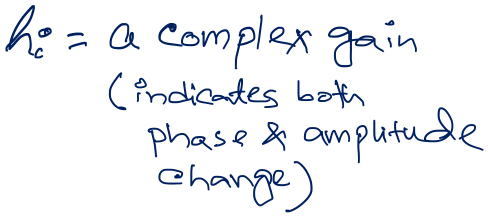 h_i = a complex gain
(indicates both
phase & amplitude
change)